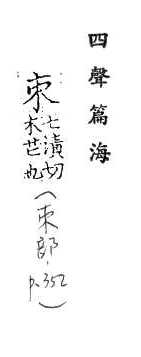 四聲篇海
朿七漬切
木芒也
(朿部,p.352)